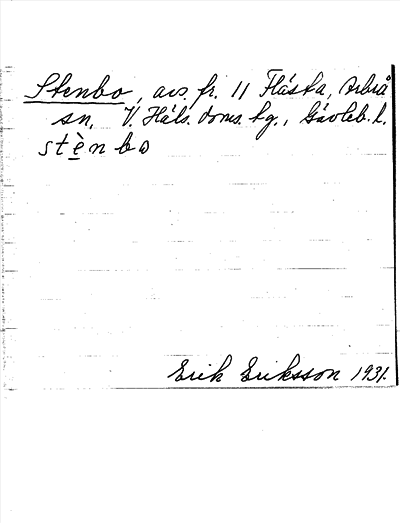 Stenbo, avs. fr. 11 Flästa, Arbrå
sn, V. Häls. doms. tg., Gävleb. l.
stènbo
Erik Eriksson 1931.